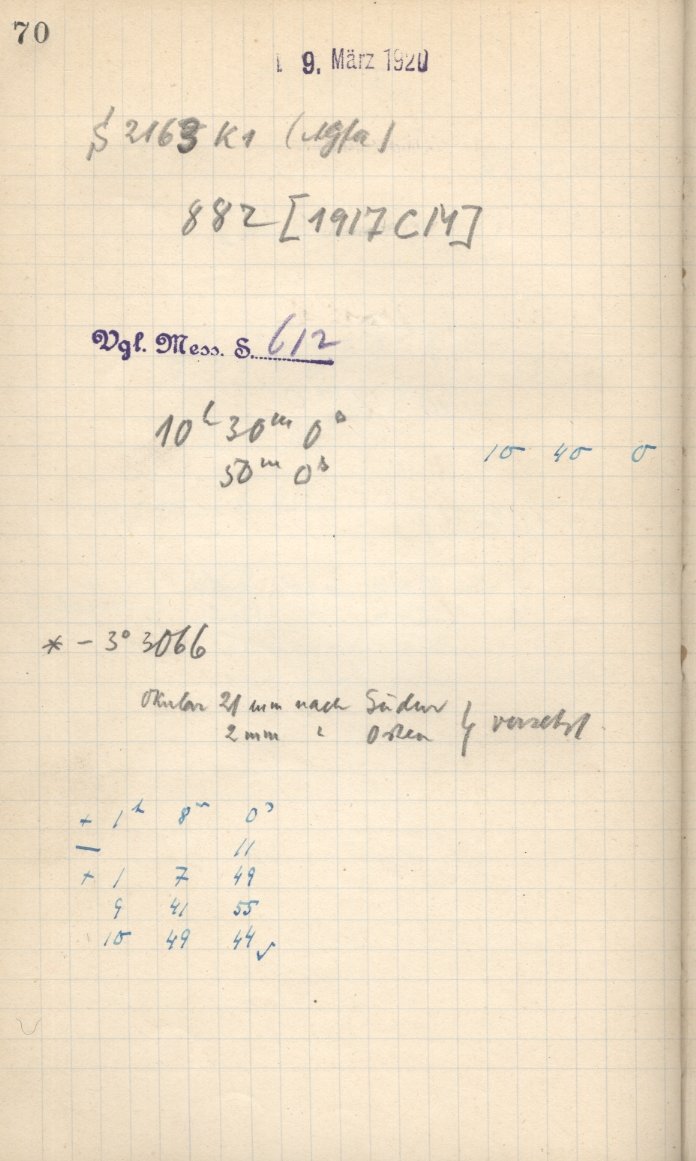 70
9. März 1920
S 2163 K1 (Agfa)
882 [1917 CM]
Vgl. Mess. S. 612
10h 30m 0s
50m 0s
10 40 0
* - 3° 3066
Okular 21 mm nach Süden
2 mm " Osten } versetzt
+ 1h 8m 0s
— 11
+ 1 7 49
9 41 55
10 49 44 ✓